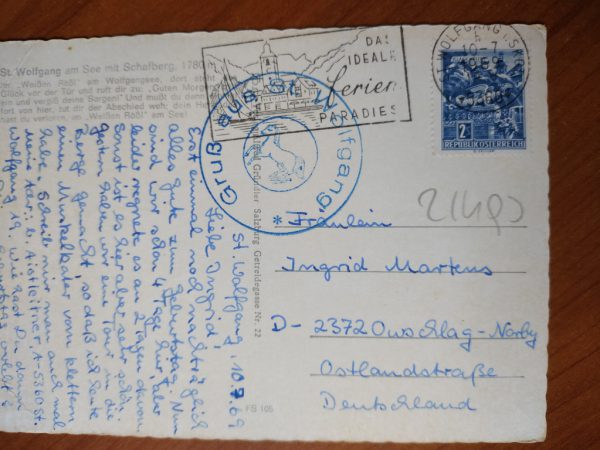 St Wolfgang am See mit Schafberg, 1780
"Weißen Rößl" am Wolfgangsee, dort steht
Glück vor der Tür und ruft dir zu: „Guten Morgen
ein und vergiß deine Sorgen! Und mußt du dann
fort von hier, tut dir der Abschied weh; dein
hast du verloren, im „Weißen Rößl" am See!
DAS
IDEALE
Ferien
PARADIES
WOLFGANG I. S
10.-7.
1969
2
REPUBLIK ÖSTERREICH
Gruß aus St. Wolfgang
Gründler Salzburg Getreidegasse Nr. 22
FS 105
St. Wolfgang, 10.7.69
Liebe Ingrid!
Erst einmal noch nachträglich
alles gute zum Geburtstag. Nun
sind wir schon 4 Tage hier, aber
leider regnete es an 2 Tagen davon.
Sonst ist es hier aber sehr schön.
Gestern haben wir eine Tour in die
Berge gemacht, so daß ich heute
einen Muskelkater vom klettern
habe. Schreib mir man auch mal
meine Adr.: A-5360 St.
Wolfgang 19. Wie hast Du denn
*Fräulein
Ingrid Martens
D-2372 Owschlag-Norby
Ostlandstraße
Deutschland